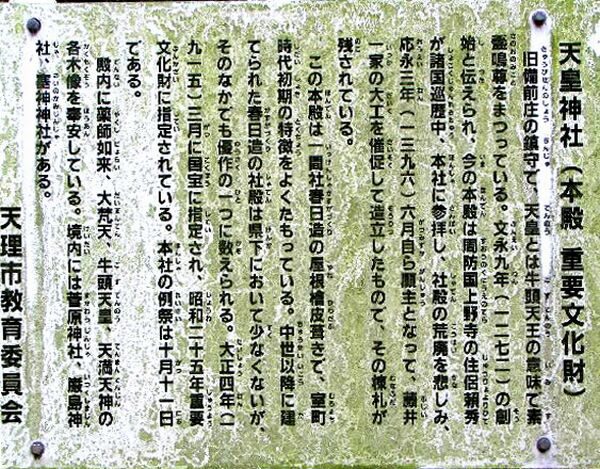 天皇神社（本殿 重要文化財）
旧備前庄の鎮守で、天皇とは牛頭天王の意味で素
盞嗚尊をまつっている。文永九年（一二七二）の創
始と伝えられ、今の本殿は周防国上野寺の住侶頼秀
が諸国巡歴中、本社に参拝し、社殿の荒廃を悲しみ、
応永三年（一三九六）六月自ら願主となって、藤井
一家の大工を催促して造立したもので、その棟札が
残されている。
この本殿は一間社春日造の屋根檜皮葺きで、室町
時代初期の特徴をよくたもっている。中世以降に建
てられた春日造の社殿は県下において少なくないが、
そのなかでも優作の一つに数えられる。大正四年（一
九一五）三月に国宝に指定され、昭和二十五年重要
文化財に指定されている。本社の例祭は十月十一日
である。
殿内に薬師如来、大梵天、牛頭天皇、天満天神の
各木像を奉安している。境内には菅原神社、厳島神
社、塞神神社がある。
天理市教育委員会